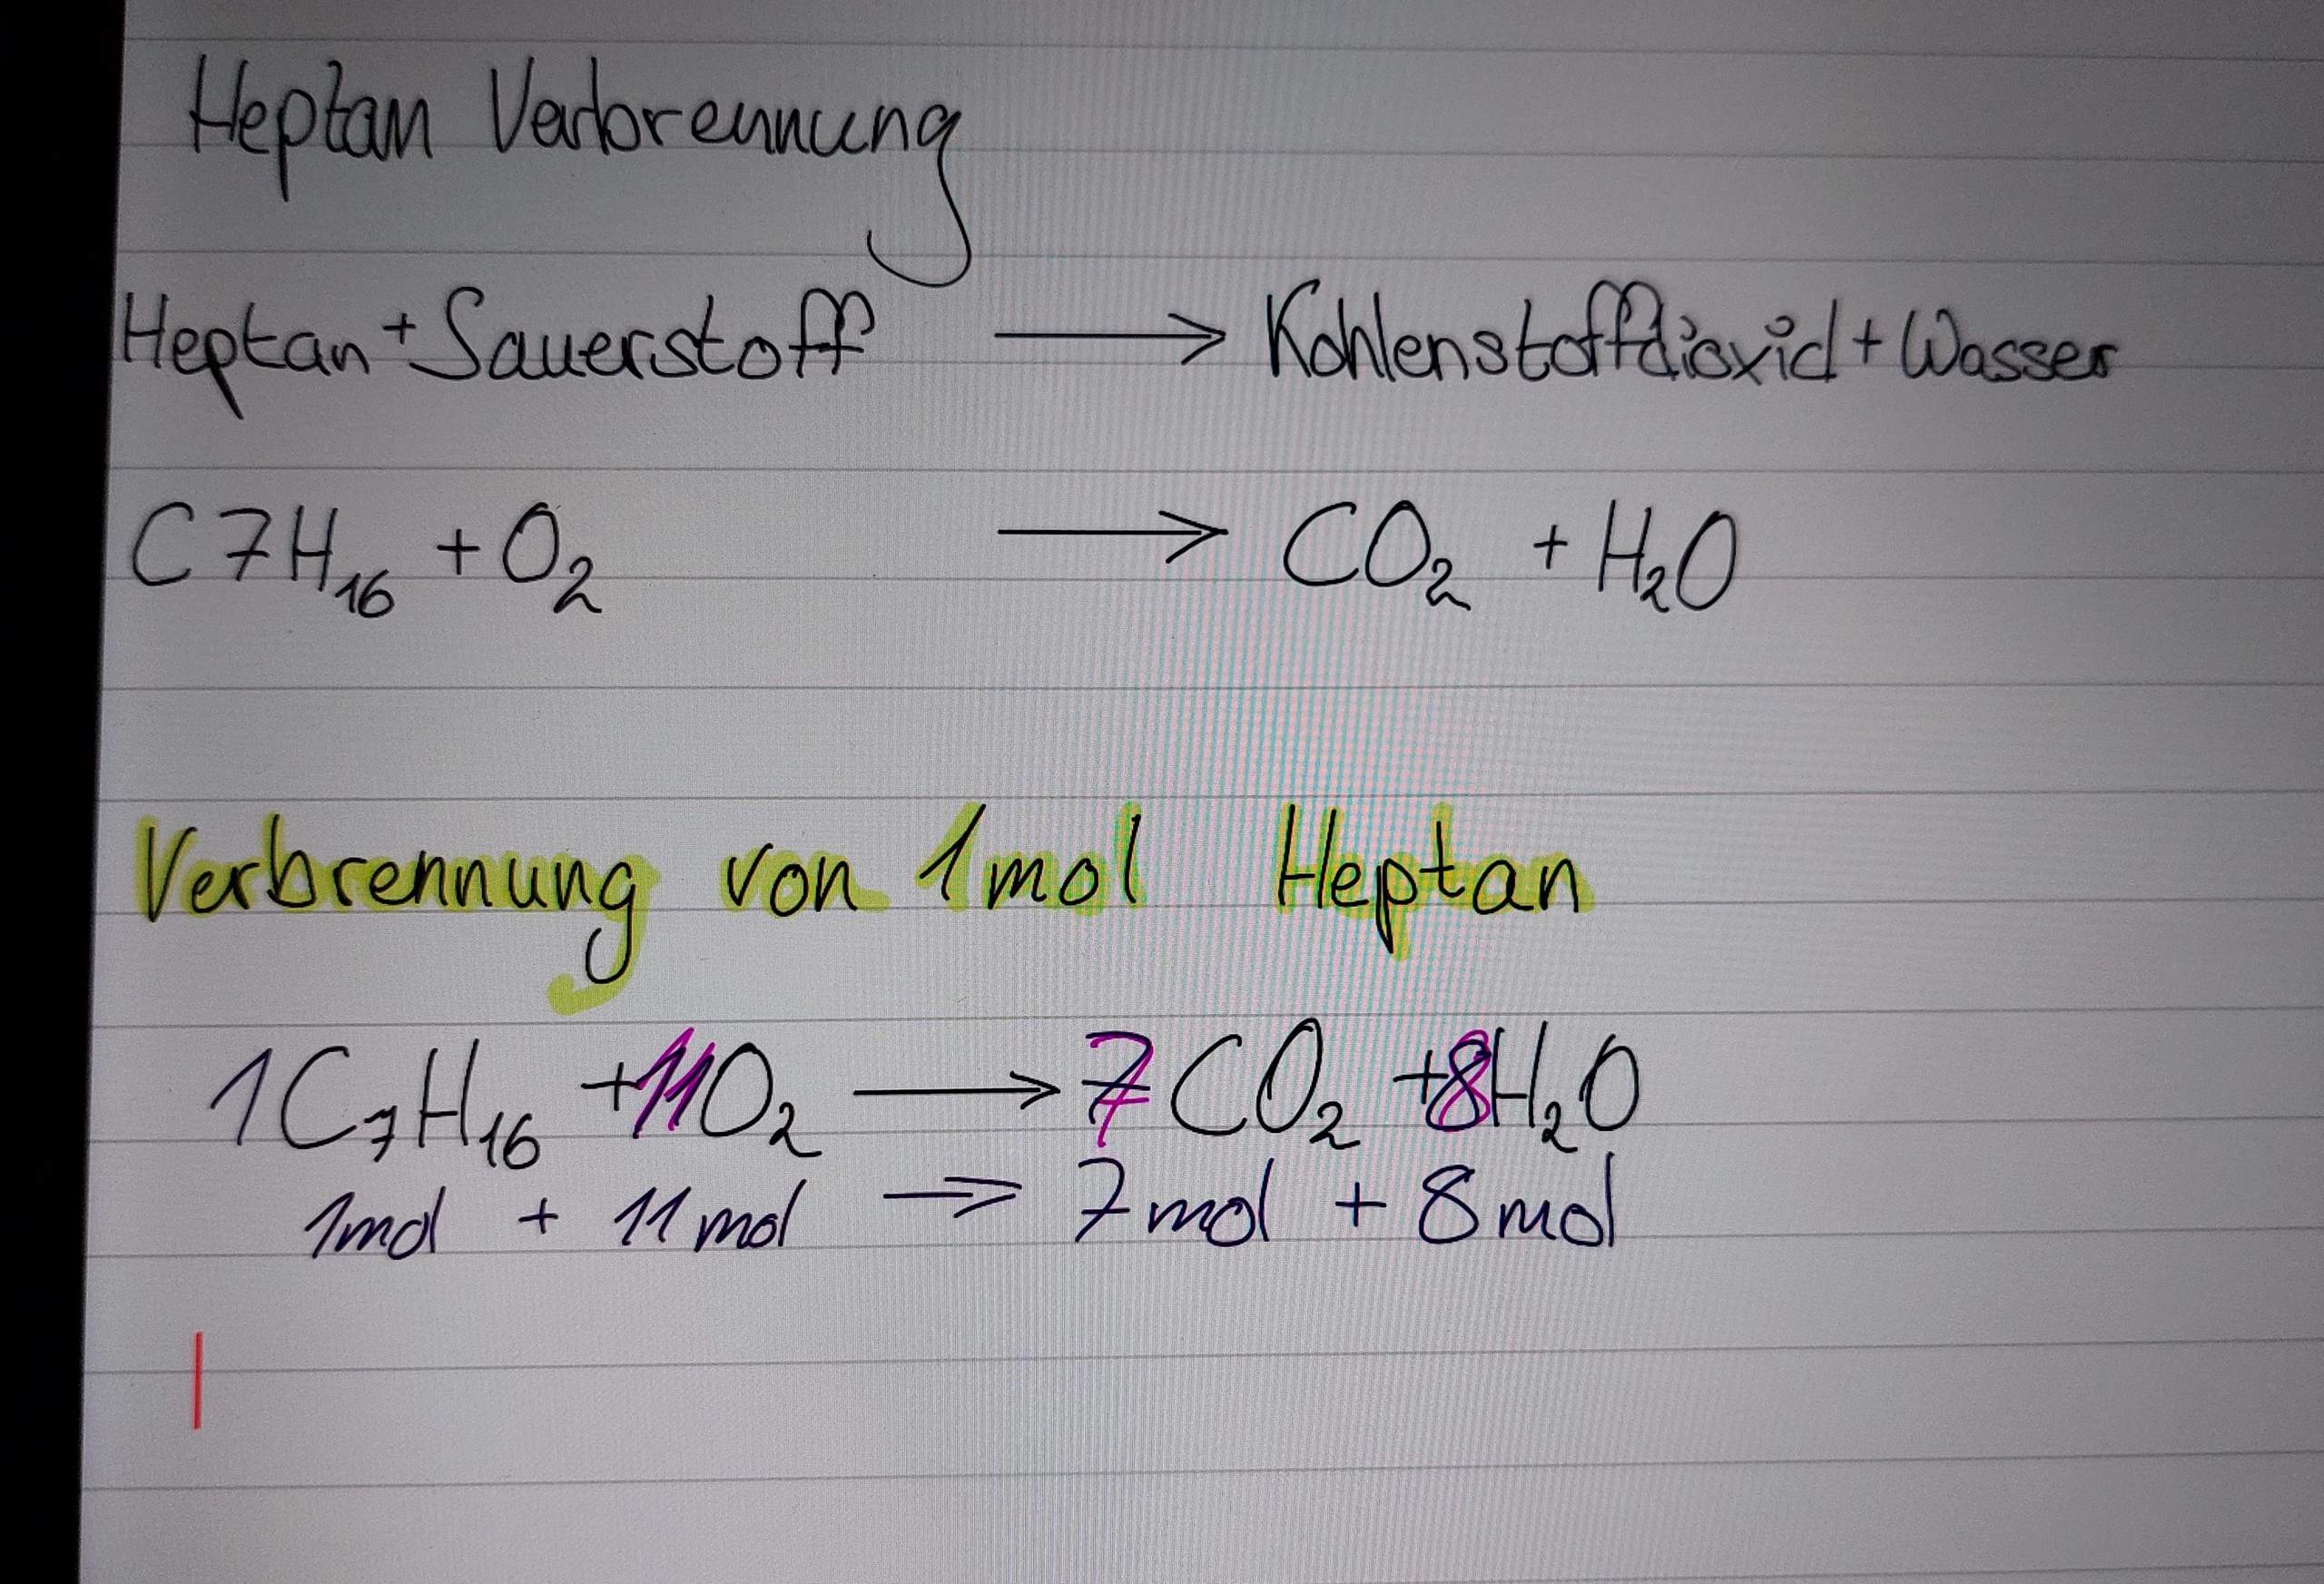 Heptan Verbrennung
Heptan + Sauerstoff → Kohlenstoffdioxid + Wasser
C7H₁₆ + O₂ → CO₂ + H₂O
Verbrennung von 1mol Heptan
1C₇H₁₆ + 11O₂ → 7CO₂ + 8H₂O
1mol + 11mol ⇒ 7mol + 8mol